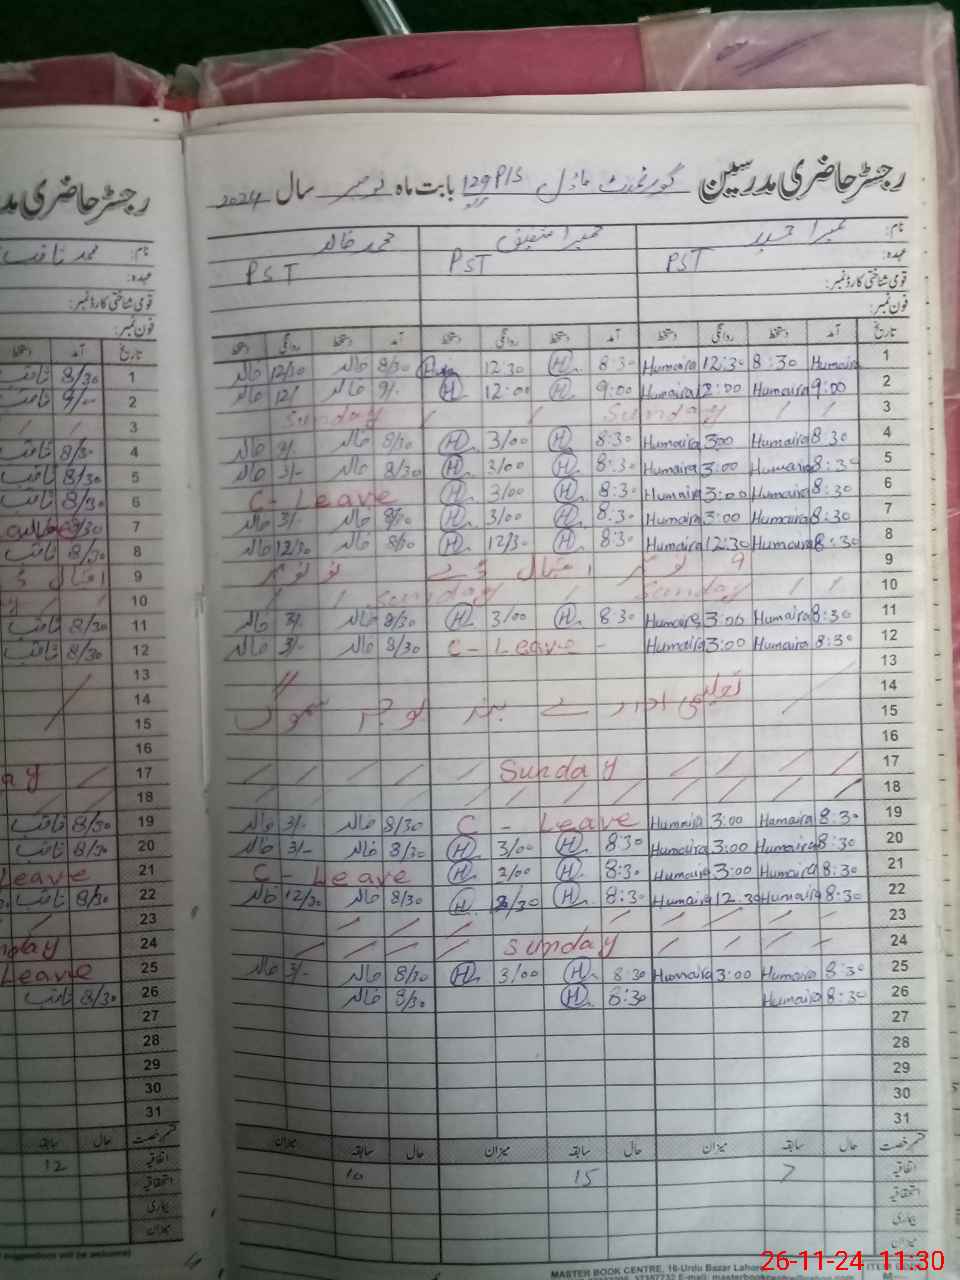 رجسٹر حاضری مدرسین گورنمنٹ ماڈل 129 P/S بابت ماہ نومبر سال 2024
نام: حمیرا حمیرا محمد خالد
عہدہ: PST PST PST
قومی شناختی کارڈ نمبر:
فون نمبر:
تاریخ آمد دستخط روانگی دستخط آمد دستخط روانگی دستخط آمد دستخط روانگی دستخط
1 Humaira 8:30 12:30 Humaira 8:30 H 12:30 8/30 خالد 12/30 خالد
2 9:00 Humaira 12:00 Humaira 9:00 H 12:00 H 9/- خالد 12/ خالد
3 Sunday Sunday
4 8:30 Humaira 3:00 Humaira 8:30 H 3/00 H 8/30 خالد 3/- خالد
5 8:30 Humaira 3:00 Humaira 8:30 H 3/00 H 8/30 خالد 3/- خالد
6 8:30 Humaira 3:00 Humaira 8:30 H 3/00 H C- Leave
7 8:30 Humaira 3:00 Humaira 8:30 H 3/00 H 8/30 خالد 3/- خالد
8 8:30 Humaira 12:30 Humaira 8:30 H 12/30 H 8/30 خالد 12/30 خالد
9 9 نومبر اقبال ڈے
10 Sunday Sunday
11 8:30 Humaira 3:00 Humaira 8:30 H 3/00 H 8/30 خالد 3/- خالد
12 8:30 Humaira 3:00 Humaira C- Leave - 8/30 خالد 3/- خالد
13
14
15 تعلیمی ادارے بند بوجہ سموگ
16
17 Sunday
18
19 8:30 Humaira 3:00 Humaira C - Leave 8/30 خالد 3/- خالد
20 8:30 Humaira 3:00 Humaira 8:30 H 3/00 H 8/30 خالد 3/- خالد
21 8:30 Humaira 3:00 Humaira 8:30 H 2/00 H C- Leave
22 8:30 Humaira 12:30 Humaira 8:30 H /30 H 8/30 خالد 12/30 خالد
23
24 Sunday
25 8:30 Humaira 3:00 Humaira 8:30 H 3/00 H 8/30 خالد 3/- خالد
26 8:30 Humaira 8:30 H 8/30 خالد
27
28
29
30
31
قسم رخصت حال سابقہ میزان حال سابقہ میزان حال سابقہ میزان
اتفاقیہ 7 15 10
استحقاقیہ
بیماری
میزان
رجسٹر حاضری مد
نام: محمد ثاقب
عہدہ:
قومی شناختی کارڈ نمبر:
فون نمبر:
تاریخ آمد دستخط
1 8/30 ثاقب
2 9/- ثاقب
3
4 8/30 ثاقب
5 8/30 ثاقب
6 8/30 ثاقب
7 8/30
8 8/30 ثاقب
9 اقبال ڈے
10
11 8/30 ثاقب
12 8/30 ثاقب
13
14
15
16
17 ay
18
19 8/30 ثاقب
20 8/30 ثاقب
21 Leave
22 8/30 ثاقب
23
24 nday
25 Leave
26 8/30 ثاقب
27
28
29
30
31
قسم رخصت حال سابقہ
اتفاقیہ 12
استحقاقیہ
بیماری
میزان
suggestions will be welcome)
MASTER BOOK CENTRE, 16-Urdu Bazar Lahore
26-11-24 11:30